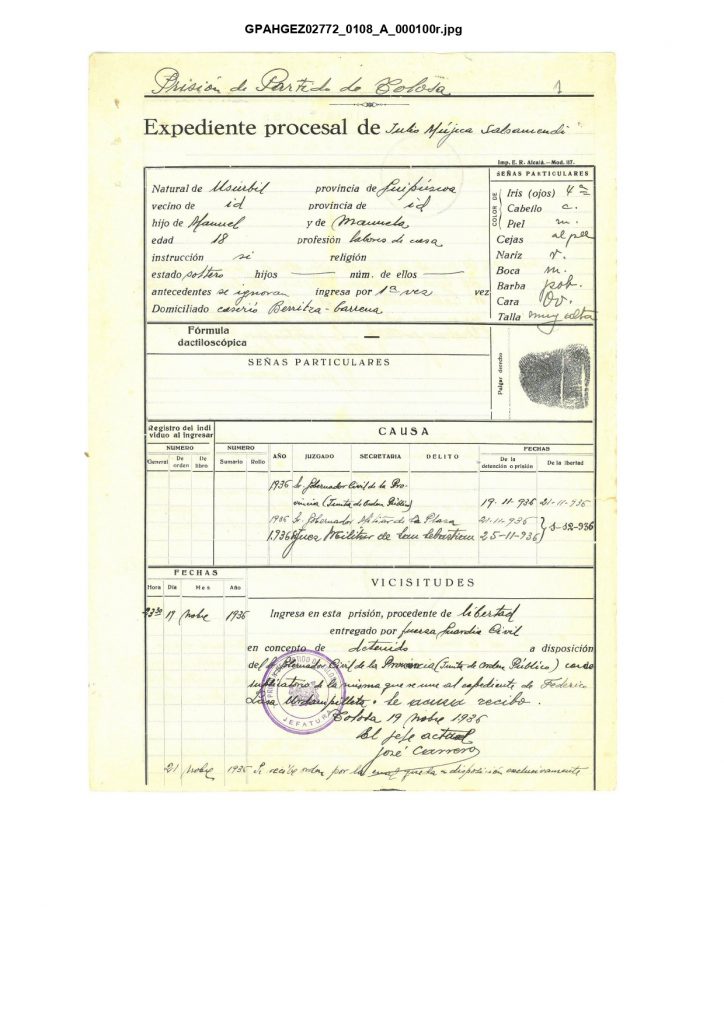 GPAHGEZ02772_0108_A_000100r.jpg
Prisión de Partido de Tolosa 1
Expediente procesal de Julio Mújica Salsamendi
Imp. E. R. Alcalá.—Mod. 117.
SEÑAS PARTICULARES
Natural de Usúrbil provincia de Guipúscoa
vecino de id provincia de id
hijo de Manuel y de Manuela
edad 18 profesión labores de casa
instrucción si religión
estado soltero hijos —— núm. de ellos ——
antecedentes se ignoran ingresa por 1ª ves vez
Domiciliado caserío Berritza-barrena
COLOR DE
Iris (ojos)
Cabello c.
Piel m.
Cejas al pelo
Nariz r.
Boca m.
Barba pob.
Cara Ov.
Talla muy alta
Fórmula
dactiloscópica —
SEÑAS PARTICULARES
Pulgar derecho
Registro del indi
viduo al ingresar
CAUSA
NUMERO
General De orden De libro
NUMERO
Sumario Rollo
AÑO JUZGADO SECRETARIA DELITO
FECHAS
De la detención o prisión De la libertad
1936 Sr. Gobernador Civil de la Pro-
vincia (Junta de Orden Público) 19-11-936 21-11-936
1936 Sr. Gobernador Militar de la Plasa 21-11-936
1.936 Jues Militar de San Sebastian 25-11-936
FECHAS
Hora Dia Mes Año
VICISITUDES
19 Nobre 1936 Ingresa en esta prisión, procedente de libertad
entregado por fuersa Guardia Civil
en concepto de detenido a disposición
del Sr. Gobernador Civil de la Provincia (Junta de Orden Público)
de la misma que se une al expediente de Federico
Se acusa recibo.
Tolosa 19 Nobre 1936
El jefe actual
José Carrero
PRISION DE PARTIDO DE TOLOSA
JEFATURA
21 Nobre 1936 Se recibe orden por la cual queda a disposición exclusivamente